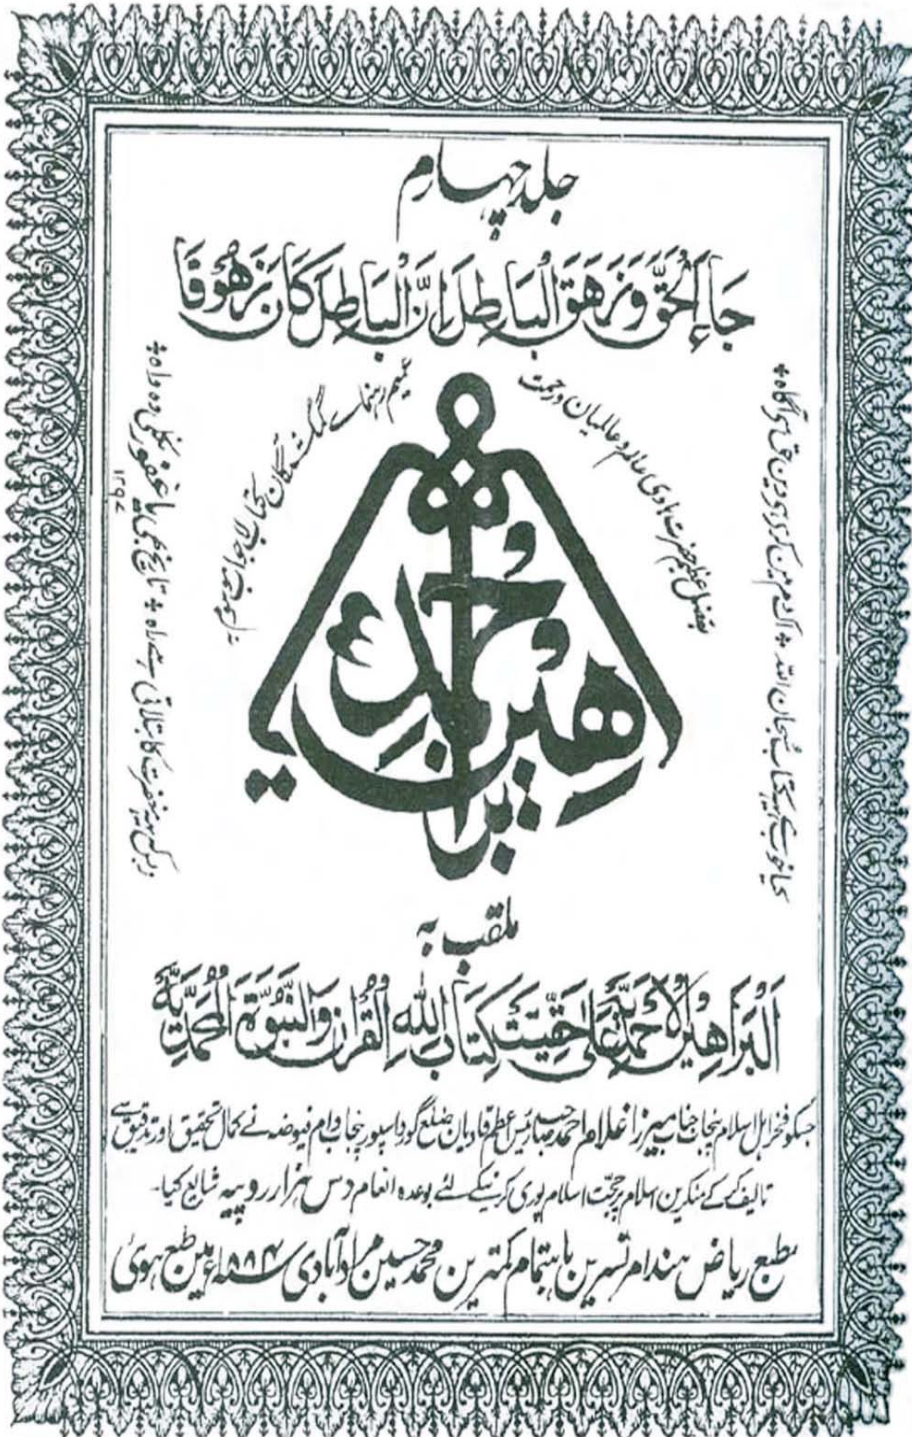 جلد چہارم
جَاءَ الْحَقُّ وَزَهَقَ الْبَاطِلُ إِنَّ الْبَاطِلَ كَانَ زَهُوقًا
بفضل عظیم حضرت ہادی عالم و عالمیان و رحمت
عمیم رہنمائے گمگشتگان کتاب لاجواب
کیا خوب ہے یہ کتاب سبحان اللہ اک دم میں کرے ہے دین حق سے آگاہ
از بس کہ یہ مغفرت کا بتلاتی ہے راہ تاریخ بھی یا غفور نکلی وہ واہ
۱۲۹۷
براہین احمدیہ
ملقب بہ
اَلْبَرَاهِیْنُ الْاَحْمَدِیَّة عَلٰی حَقِّیَّتِ کِتَابِ اللّٰهِ الْقُرْاٰنِ وَالنُّبُوَّةِ الْمُحَمَّدِیَّةِ
جسکو فخر اہل اسلام پنجاب جناب میرزا غلام احمد صاحب رئیس اعظم قادیان ضلع گورداسپور پنجاب دام فیوضہ نے کمال تحقیق اور تدقیق سے
تالیف کر کے منکرین اسلام پر حجت اسلام پوری کرنیکے لئے بوعدہ انعام دس ہزار روپیہ شایع کیا۔
مطبع ریاض ہند امرتسر میں باہتمام کمترین محمد حسین مراد آبادی سنہ ۱۸۸۴ء میں طبع ہوئی